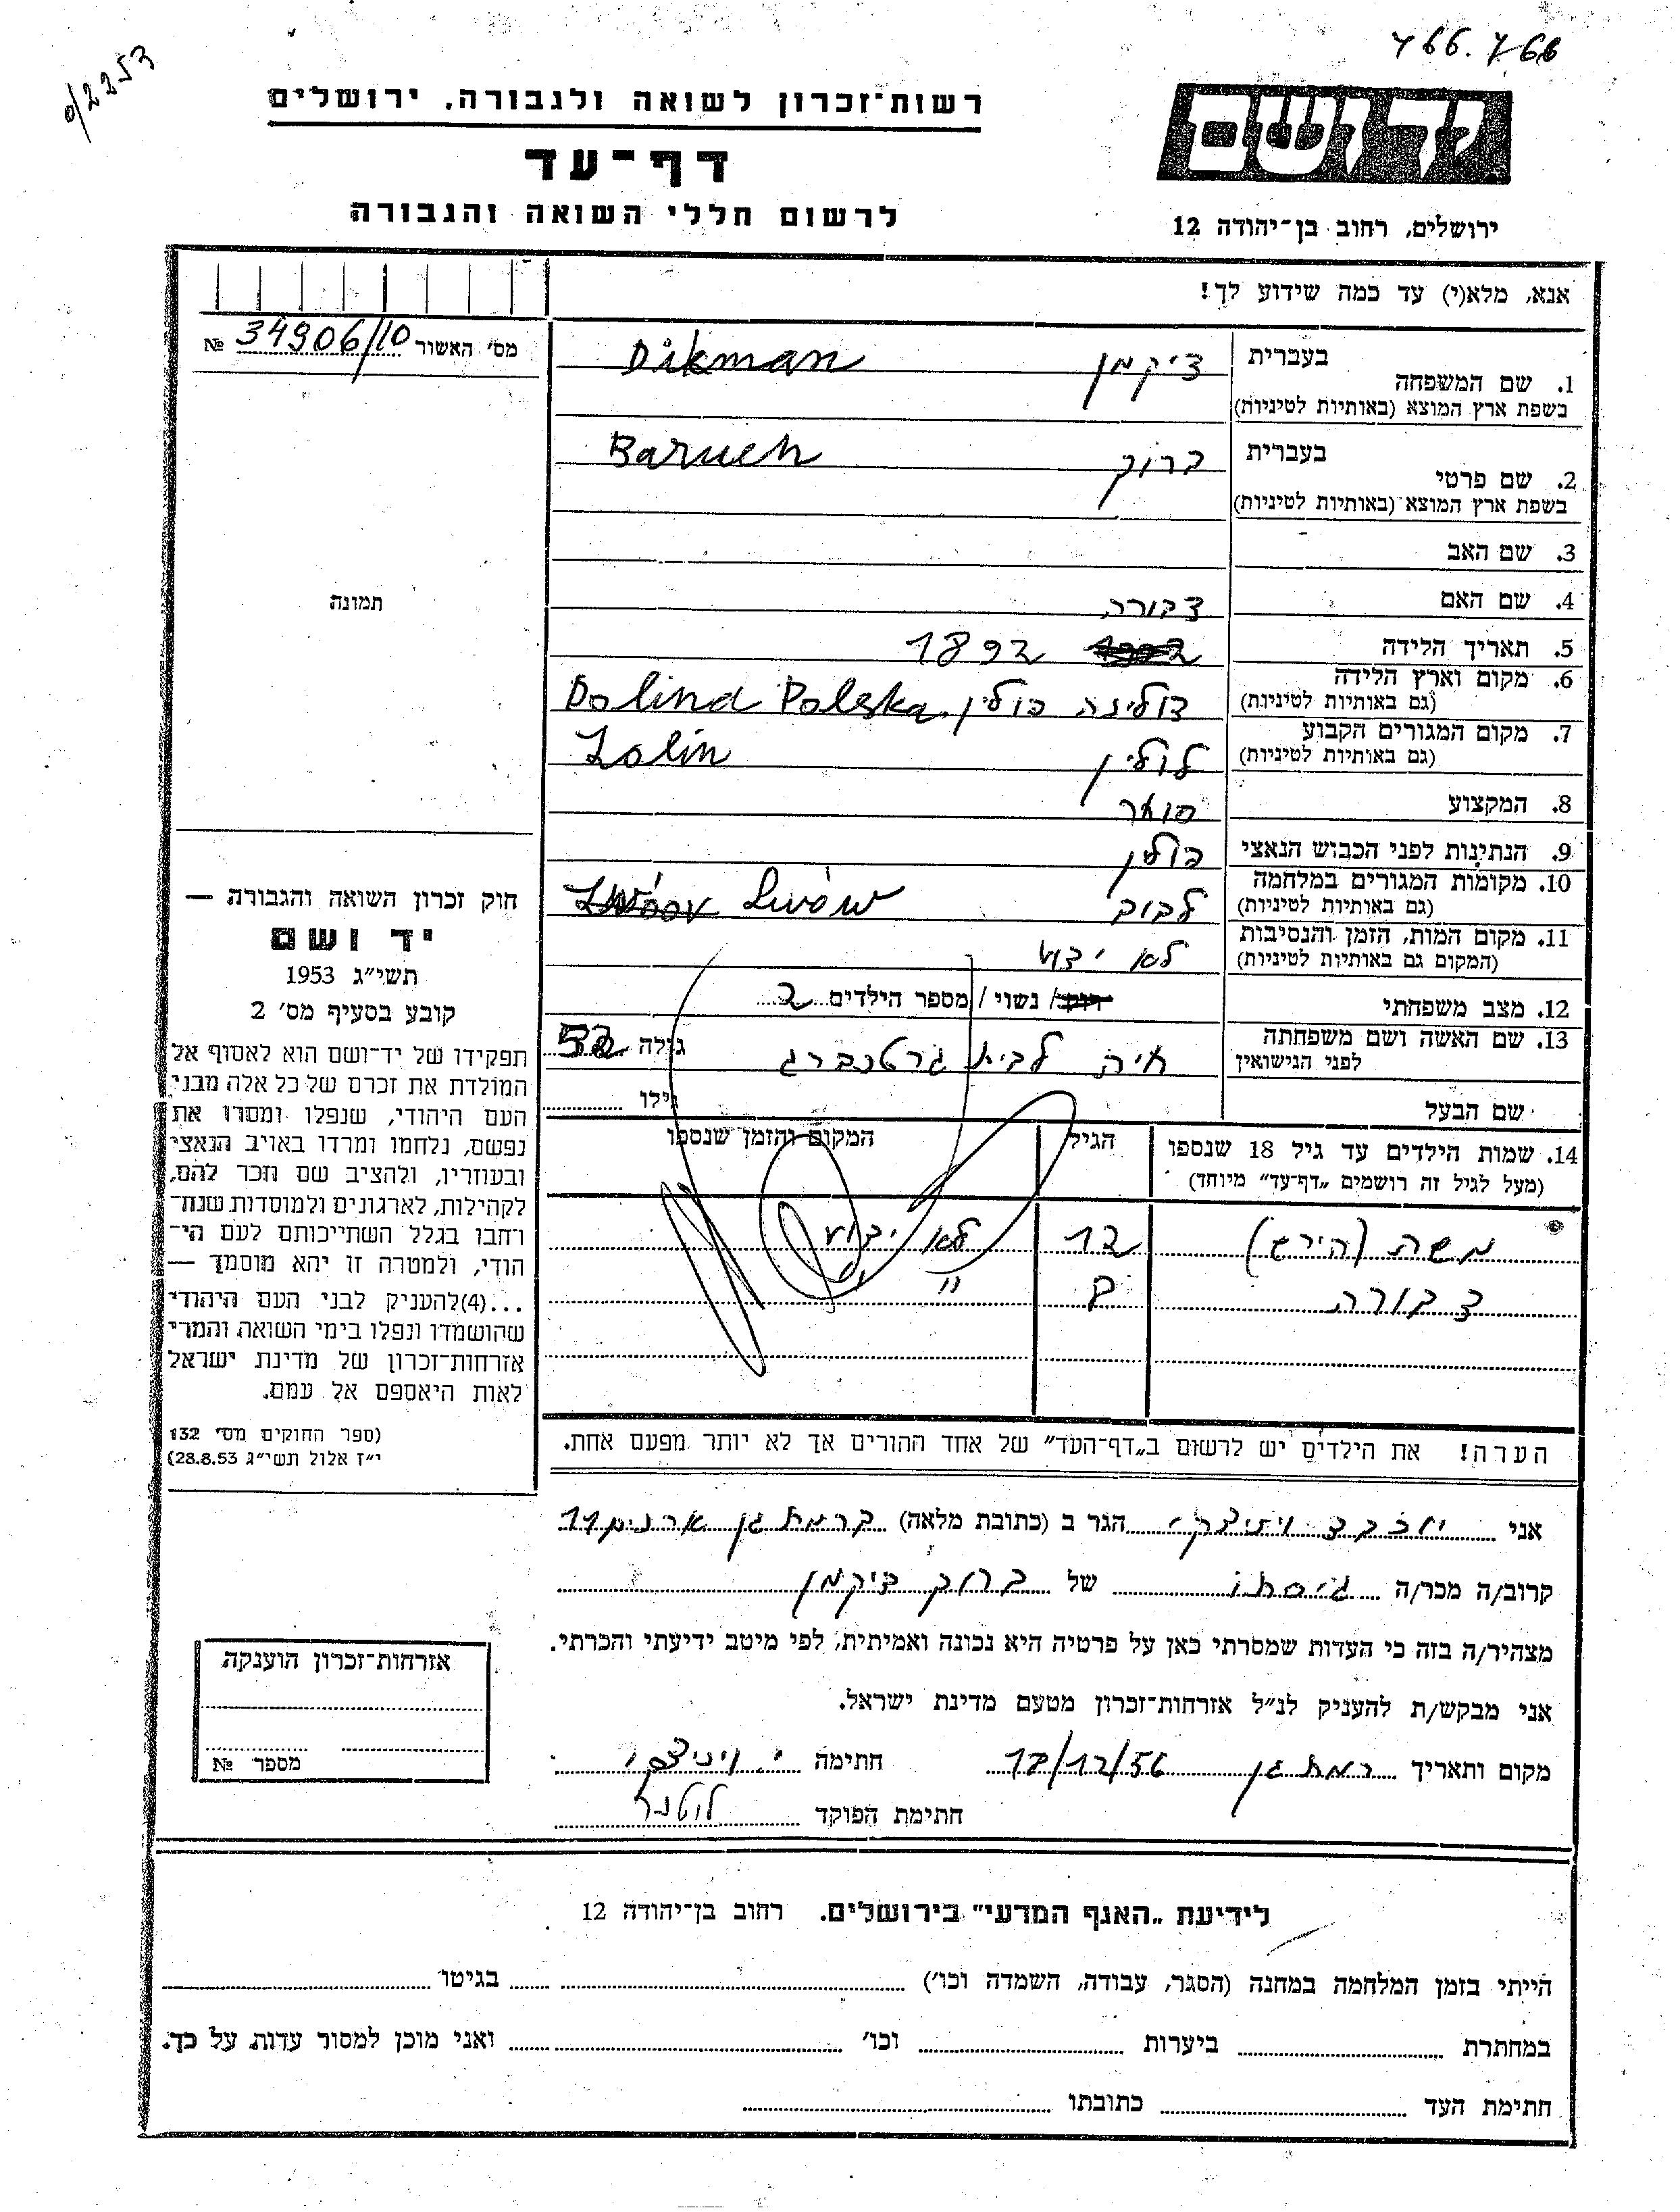 0/2253
766.766
רשות־זכרון לשואה ולגבורה. ירושלים
דף־עד
לרשום חללי השואה והגבורה
יד ושם
ירושלים, רחוב בן־יהודה 12
אנא, מלא(י) עד כמה שידוע לך!
מס' האשור 34906/10 №
1. שם המשפחה
בעברית דיקמן Dikman
בשפת ארץ המוצא (באותיות לטיניות)
2. שם פרטי
בעברית ברוך Baruch
בשפת ארץ המוצא (באותיות לטיניות)
3. שם האב
4. שם האם דבורה
5. תאריך הלידה 1892
6. מקום וארץ הלידה דולינה פולין. Dolina Polska
(גם באותיות לטיניות)
7. מקום המגורים הקבוע לולין Lolin
(גם באותיות לטיניות)
8. המקצוע סוחר
9. הנתינות לפני הכבוש הנאצי פולין
10. מקומות המגורים במלחמה לבוב Lwów
(גם באותיות לטיניות)
11. מקום המות, הזמן והנסיבות לא ידוע
(המקום גם באותיות לטיניות)
12. מצב משפחתי רוק / נשוי / מספר הילדים 2
13. שם האשה ושם משפחתה חיה לבית גרטנברג גילה 52
לפני הנישואין
שם הבעל גילו
14. שמות הילדים עד גיל 18 שנספו הגיל המקום והזמן שנספו
(מעל לגיל זה רושמים „דף־עד" מיוחד)
משה (הירש) 12 לא ידוע
דבורה "
הערה! את הילדים יש לרשום ב„דף־העד" של אחד ההורים אך לא יותר מפעם אחת.
תמונה
חוק זכרון השואה והגבורה —
יד ושם
תשי"ג 1953
קובע בסעיף מס' 2
תפקידו של יד־ושם הוא לאסוף אל
המולדת את זכרם של כל אלה מבני
העם היהודי, שנפלו ומסרו את
נפשם, נלחמו ומרדו באויב הנאצי
ובעוזריו, ולהציב שם וזכר להם,
לקהילות, לארגונים ולמוסדות שנח־
רבו בגלל השתייכותם לעם הי־
הודי, ולמטרה זו יהא מוסמך —
...(4)להעניק לבני העם היהודי
שהושמדו ונפלו בימי השואה והמרי
אזרחות־זכרון של מדינת ישראל
לאות היאספם אל עמם.
(ספר החוקים מס' 132
י"ז אלול תשי"ג 28.8.53)
אני יוכבד הגר ב (כתובת מלאה) ברמת גן ארנים 11
קרוב/ה מכר/ה גיסתו של ברוך דיקמן
מצהיר/ה בזה כי העדות שמסרתי כאן על פרטיה היא נכונה ואמיתית, לפי מיטב ידיעתי והכרתי.
אני מבקש/ת להעניק לנ"ל אזרחות־זכרון מטעם מדינת ישראל.
מקום ותאריך רמת גן 12/12/56 חתימה
חתימת הפוקד
אזרחות־זכרון הוענקה
מספר №
לידיעת „האגף המדעי" בירושלים. רחוב בן־יהודה 12
הייתי בזמן המלחמה במחנה (הסגר, עבודה, השמדה וכו') בגיטו
במחתרת ביערות וכו' ואני מוכן למסור עדות על כך.
חתימת העד כתובתו